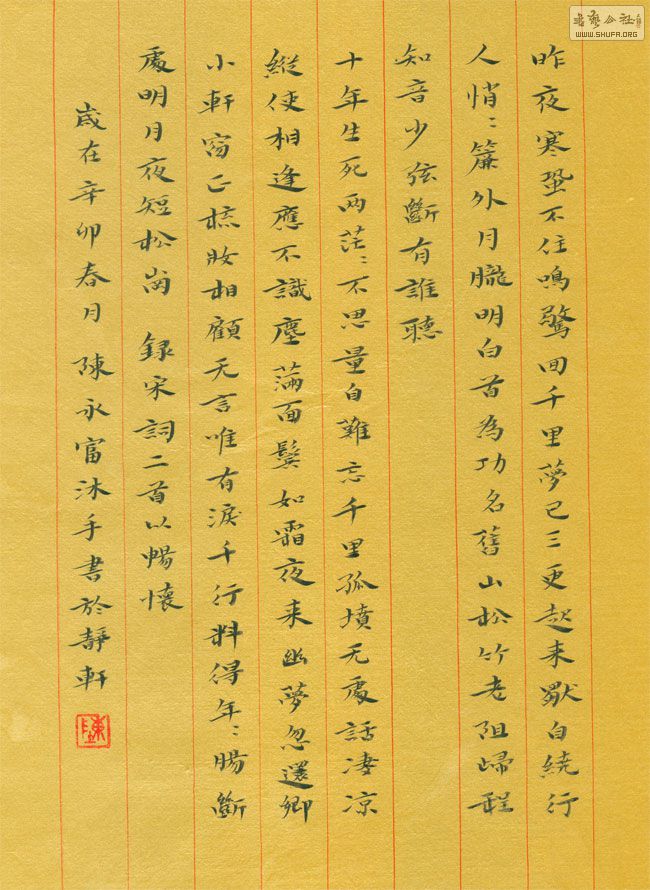 昨夜寒蛩不住鳴驚回千里夢已三更起来獨自繞行
人悄〻簾外月朧明白首為功名舊山松竹老阻歸程
知音少弦斷有誰聽
十年生死两茫〻不思量自難忘千里孤墳无處話凄凉
縱使相逢應不識塵滿面鬢如霜夜来幽夢忽還鄉
小軒窗正梳妝相顧无言唯有淚千行料得年〻腸斷
處明月夜短松崗 録宋詞二首以暢懷
歲在辛卯春月 陳永富沐手書於靜軒
陳
書藝公社
WWW.SHUFA.ORG